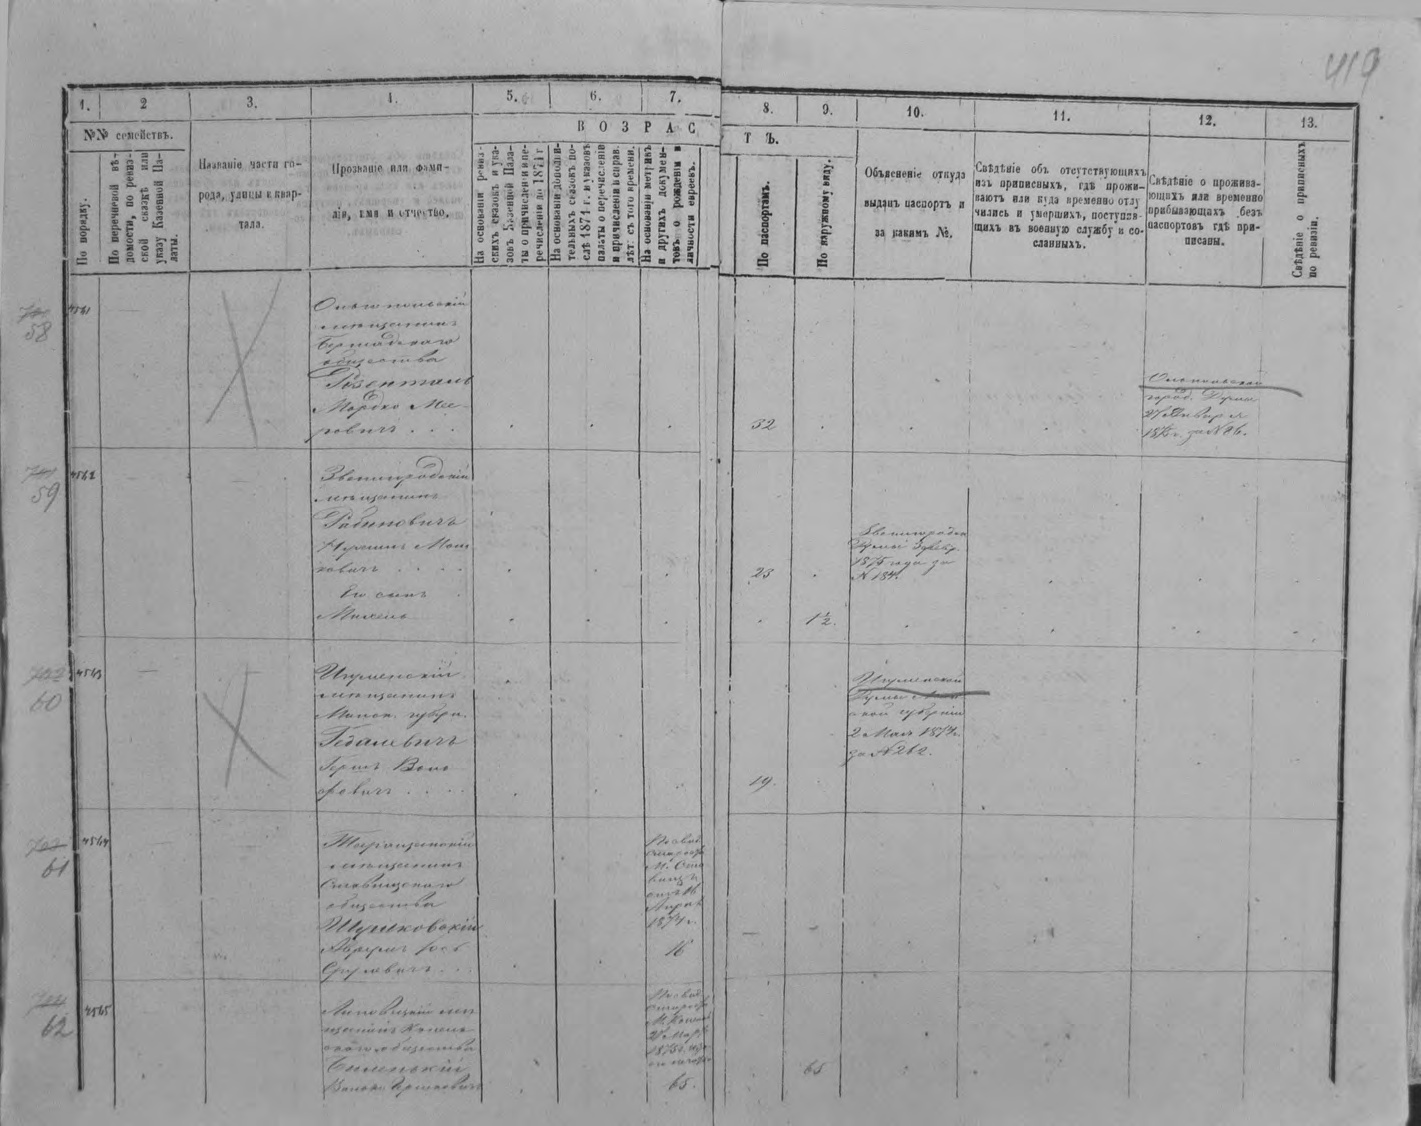 419
1.
2
3.
4.
5.
6.
7.
8.
9.
10.
11.
12.
13.
№№ семействъ.
По порядку.
По перечневой вѣ-
домости, по ревиз-
ской сказкѣ или
указу Казенной Па-
латы.
Названіе части го-
рода, улицы и квар-
тала.
Прозваніе или фами-
лія, имя и отчество.
ВОЗРАС
ТЪ.
На основаніи ревиз-
скихъ сказокъ и ука-
зовъ Казенной Пала-
ты о причисленіи и пе-
речисленіи до 1874 г
На основаніи дополни-
тельныхъ сказокъ по-
слѣ 1874 г. и указовъ
палаты о перечисленіи
и причисленіи въ справ.
лѣт. съ того времени.
На основаніи метрикъ
и другихъ докумен-
товъ о рожденіи и
личности евреевъ.
По паспортамъ.
По наружному виду.
Объясненіе откуда
выданъ паспортъ и
за какимъ №.
Свѣдѣніе объ отсутствующихъ
изъ приписныхъ, гдѣ прожи-
ваютъ или куда временно отлу
чились и умершихъ, поступив-
щихъ въ военную службу и со-
сланныхъ.
Свѣдѣніе о прожива-
ющихъ или временно
прибывающихъ безъ
паспортовъ гдѣ при-
писаны.
Свѣдѣніе о приписныхъ
по ревизіи.
58
4561
Ольгопольскій
мѣщанинъ
Бершадскаго
общества
Розенталь
Мордко Мее-
ровичъ . . .
52
город. Думы
27 Января
1875 г. за № 86.
59
4562
Звенигородскій
мѣщанинъ
Рабиновичъ
Мош
ковичъ . . . .
Его сынъ
Михель
23
1875 года за
№ 184.
1½.
60
4563
Игуменскій
мѣщанинъ
Минск. губерн.
Гедалевичъ
Гершъ Воль
фовичъ . . . .
19.
Игуменской
Думы Мин-
ской губерніи
2 Мая 1874 г.
за № 262.
61
4564
Таращанскій
мѣщанинъ
Ставищскаго
общества
Шумковскій
Абрумъ Іось
Срулевичъ . . .
По свид.
М. Ста
вищъ
отъ 16
Апрѣл
1874 г.
16
62
4565
Липовецкій мѣ
щанинъ
скаго общества
Биленькій
По свид.
27 Мар.
1875 г.
65.
65